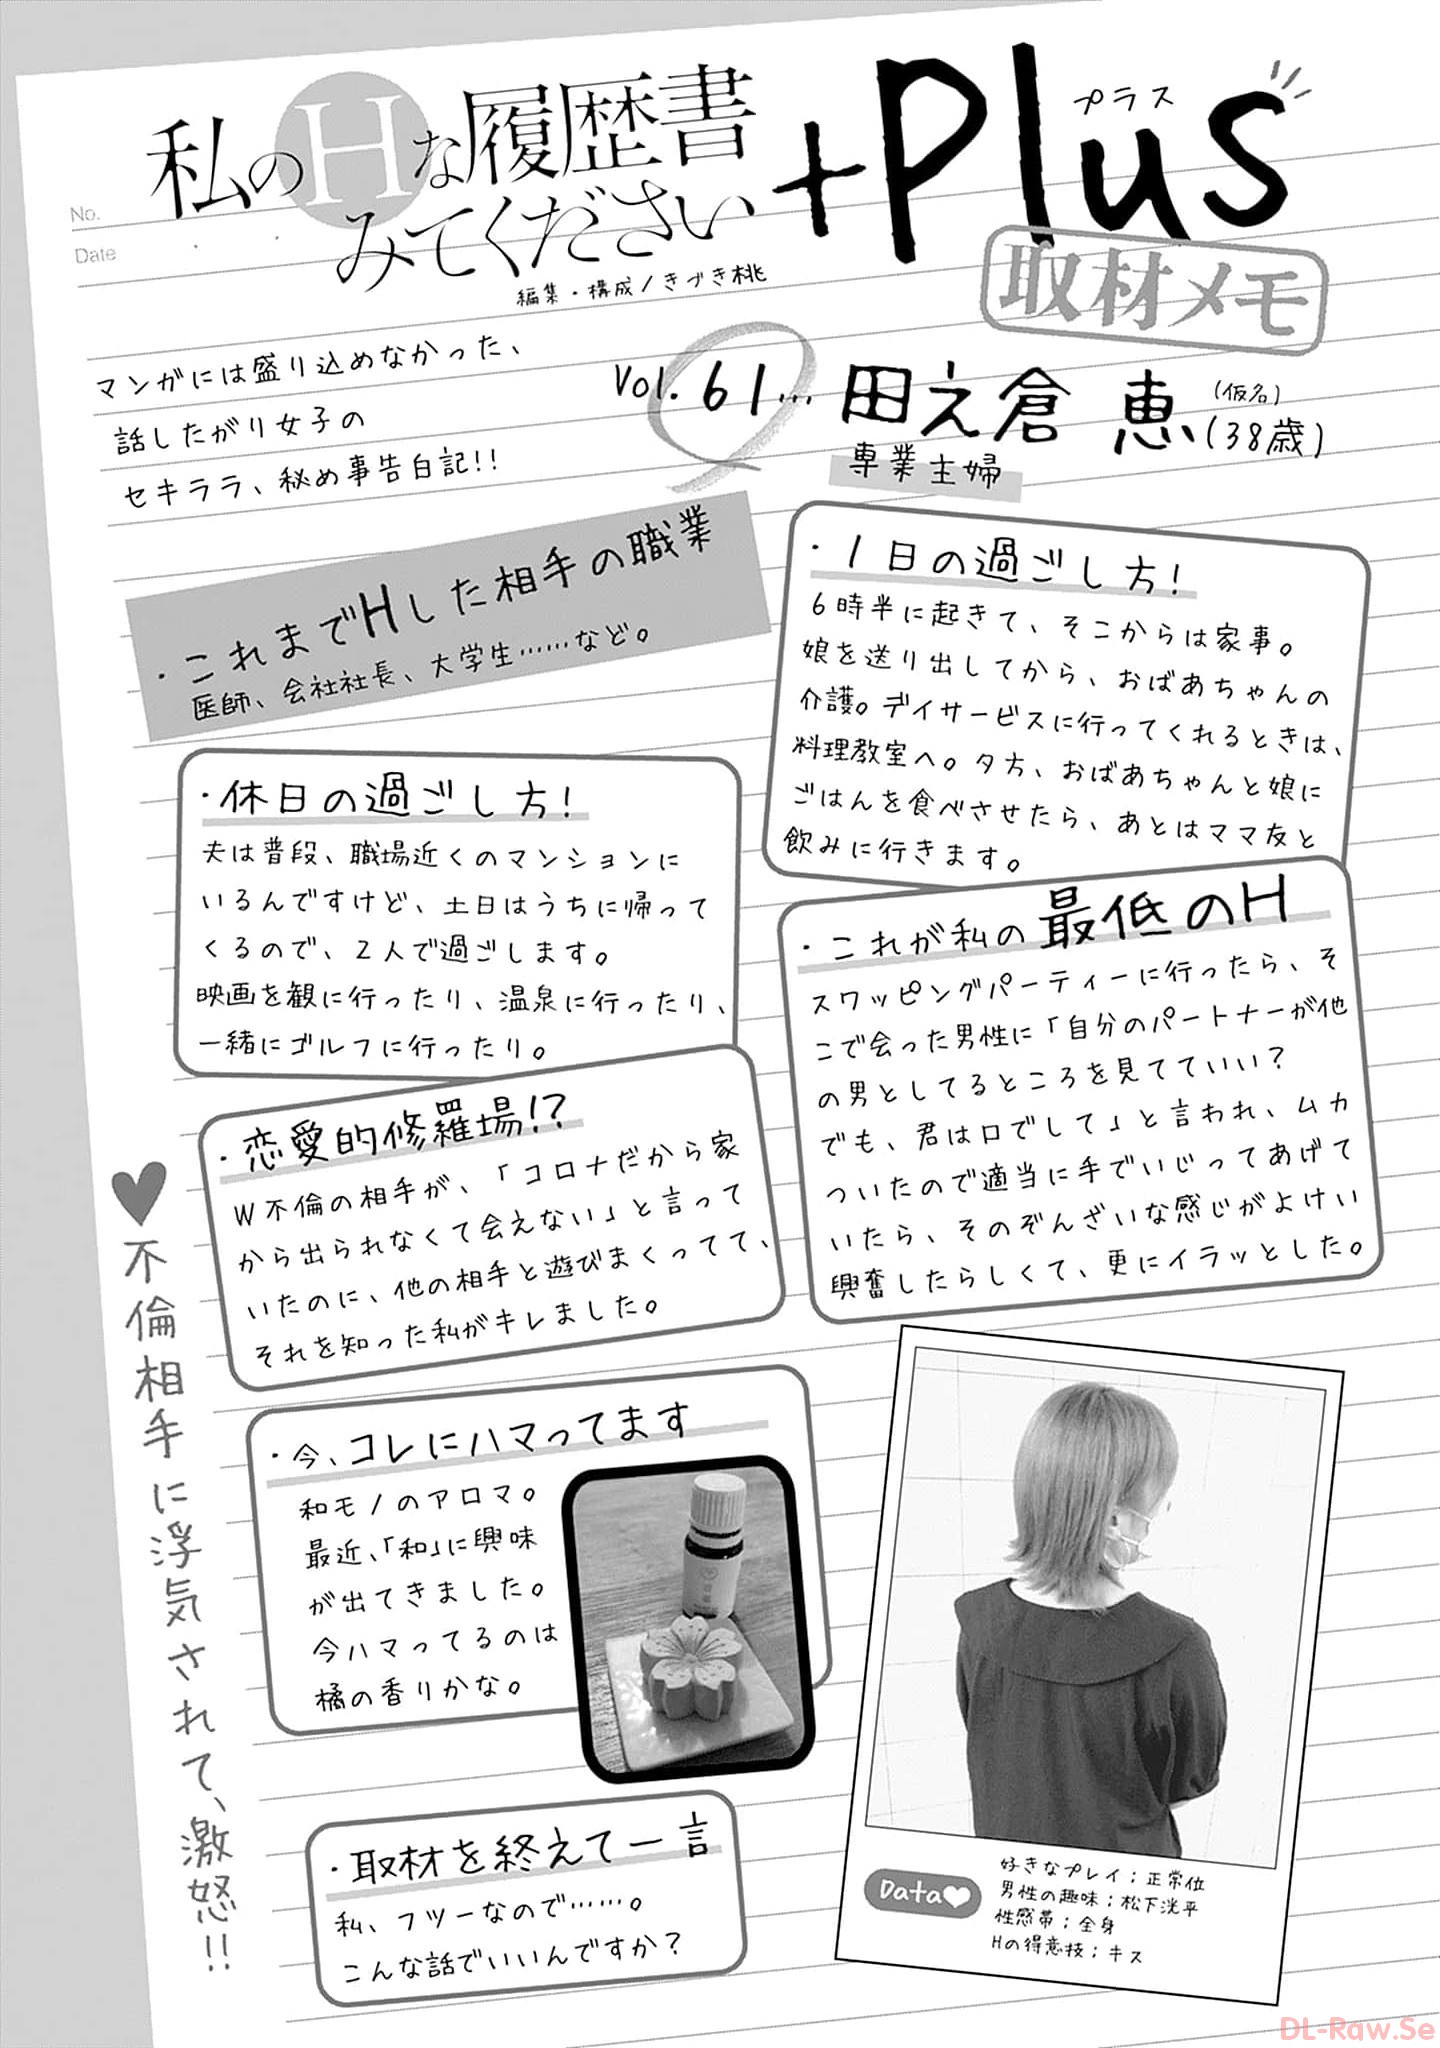 No.
Date
私のHな履歴書
みてください
+Plus
プラス
取材メモ
編集・構成/きづき桃
マンガには盛り込めなかった、
話したがり女子の
セキララ、秘め事告白記!!
Vol.61… 田之倉 恵(38歳)
(仮名)
専業主婦
・これまでHした相手の職業
医師、会社社長、大学生……など。
・1日の過ごし方!
6時半に起きて、そこからは家事。
娘を送り出してから、おばあちゃんの
介護。デイサービスに行ってくれるときは、
料理教室へ。夕方、おばあちゃんと娘に
ごはんを食べさせたら、あとはママ友と
飲みに行きます。
・休日の過ごし方!
夫は普段、職場近くのマンションに
いるんですけど、土日はうちに帰って
くるので、2人で過ごします。
映画を観に行ったり、温泉に行ったり、
一緒にゴルフに行ったり。
・これが私の最低のH
スワッピングパーティーに行ったら、そ
こで会った男性に「自分のパートナーが他
の男としてるところを見てていい?
でも、君は口でして」と言われ、ムカ
ついたので適当に手でいじってあげて
いたら、そのぞんざいな感じがよけい
興奮したらしくて、更にイラッとした。
・恋愛的修羅場!?
W不倫の相手が、「コロナだから家
から出られなくて会えない」と言って
いたのに、他の相手と遊びまくってて、
それを知った私がキレました。
♥不倫相手に浮気されて、激怒!!
・今、コレにハマってます
和モノのアロマ。
最近、「和」に興味
が出てきました。
今ハマってるのは
橘の香りかな。
・取材を終えて一言
私、フツーなので……。
こんな話でいいんですか?
Data♥
好きなプレイ;正常位
男性の趣味;松下洸平
性感帯;全身
Hの得意技;キス
DL-Raw.Se